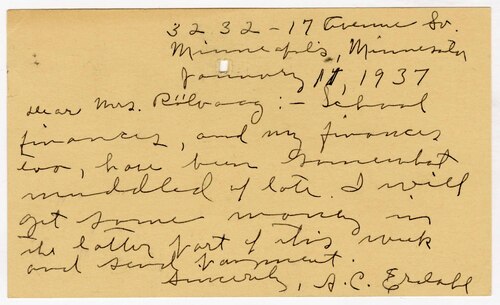 3232 - 17 Avenue So.
Minneapolis, Minnesota
January 11, 1937
Dear Mrs. Rölvaag: - School
finances, and my finances
too, have been somewhat
muddled of late. I will
get some money in
the latter part of this week
and send payment.
Sincerely, A.C. Erdahl